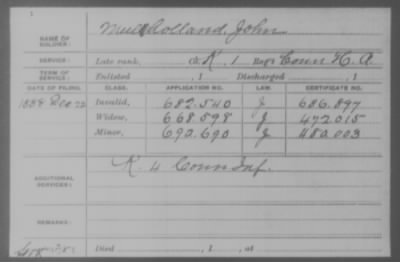 NAME OF SOLDIER: Mulholland, John
SERVICE: Late rank, Co. K, 1 Reg't Conn H. A.
TERM OF SERVICE: Enlisted , 1 Discharged , 1
DATE OF FILING. CLASS. APPLICATION NO. LAW. CERTIFICATE NO.
1888 Dec 22 Invalid, 682.540 J 686.897
Widow, 668.598 J 472.015
Minor, 690.690 J 480.003
ADDITIONAL SERVICES: K. 4 Conn Inf.
REMARKS:
Died , 1 , at